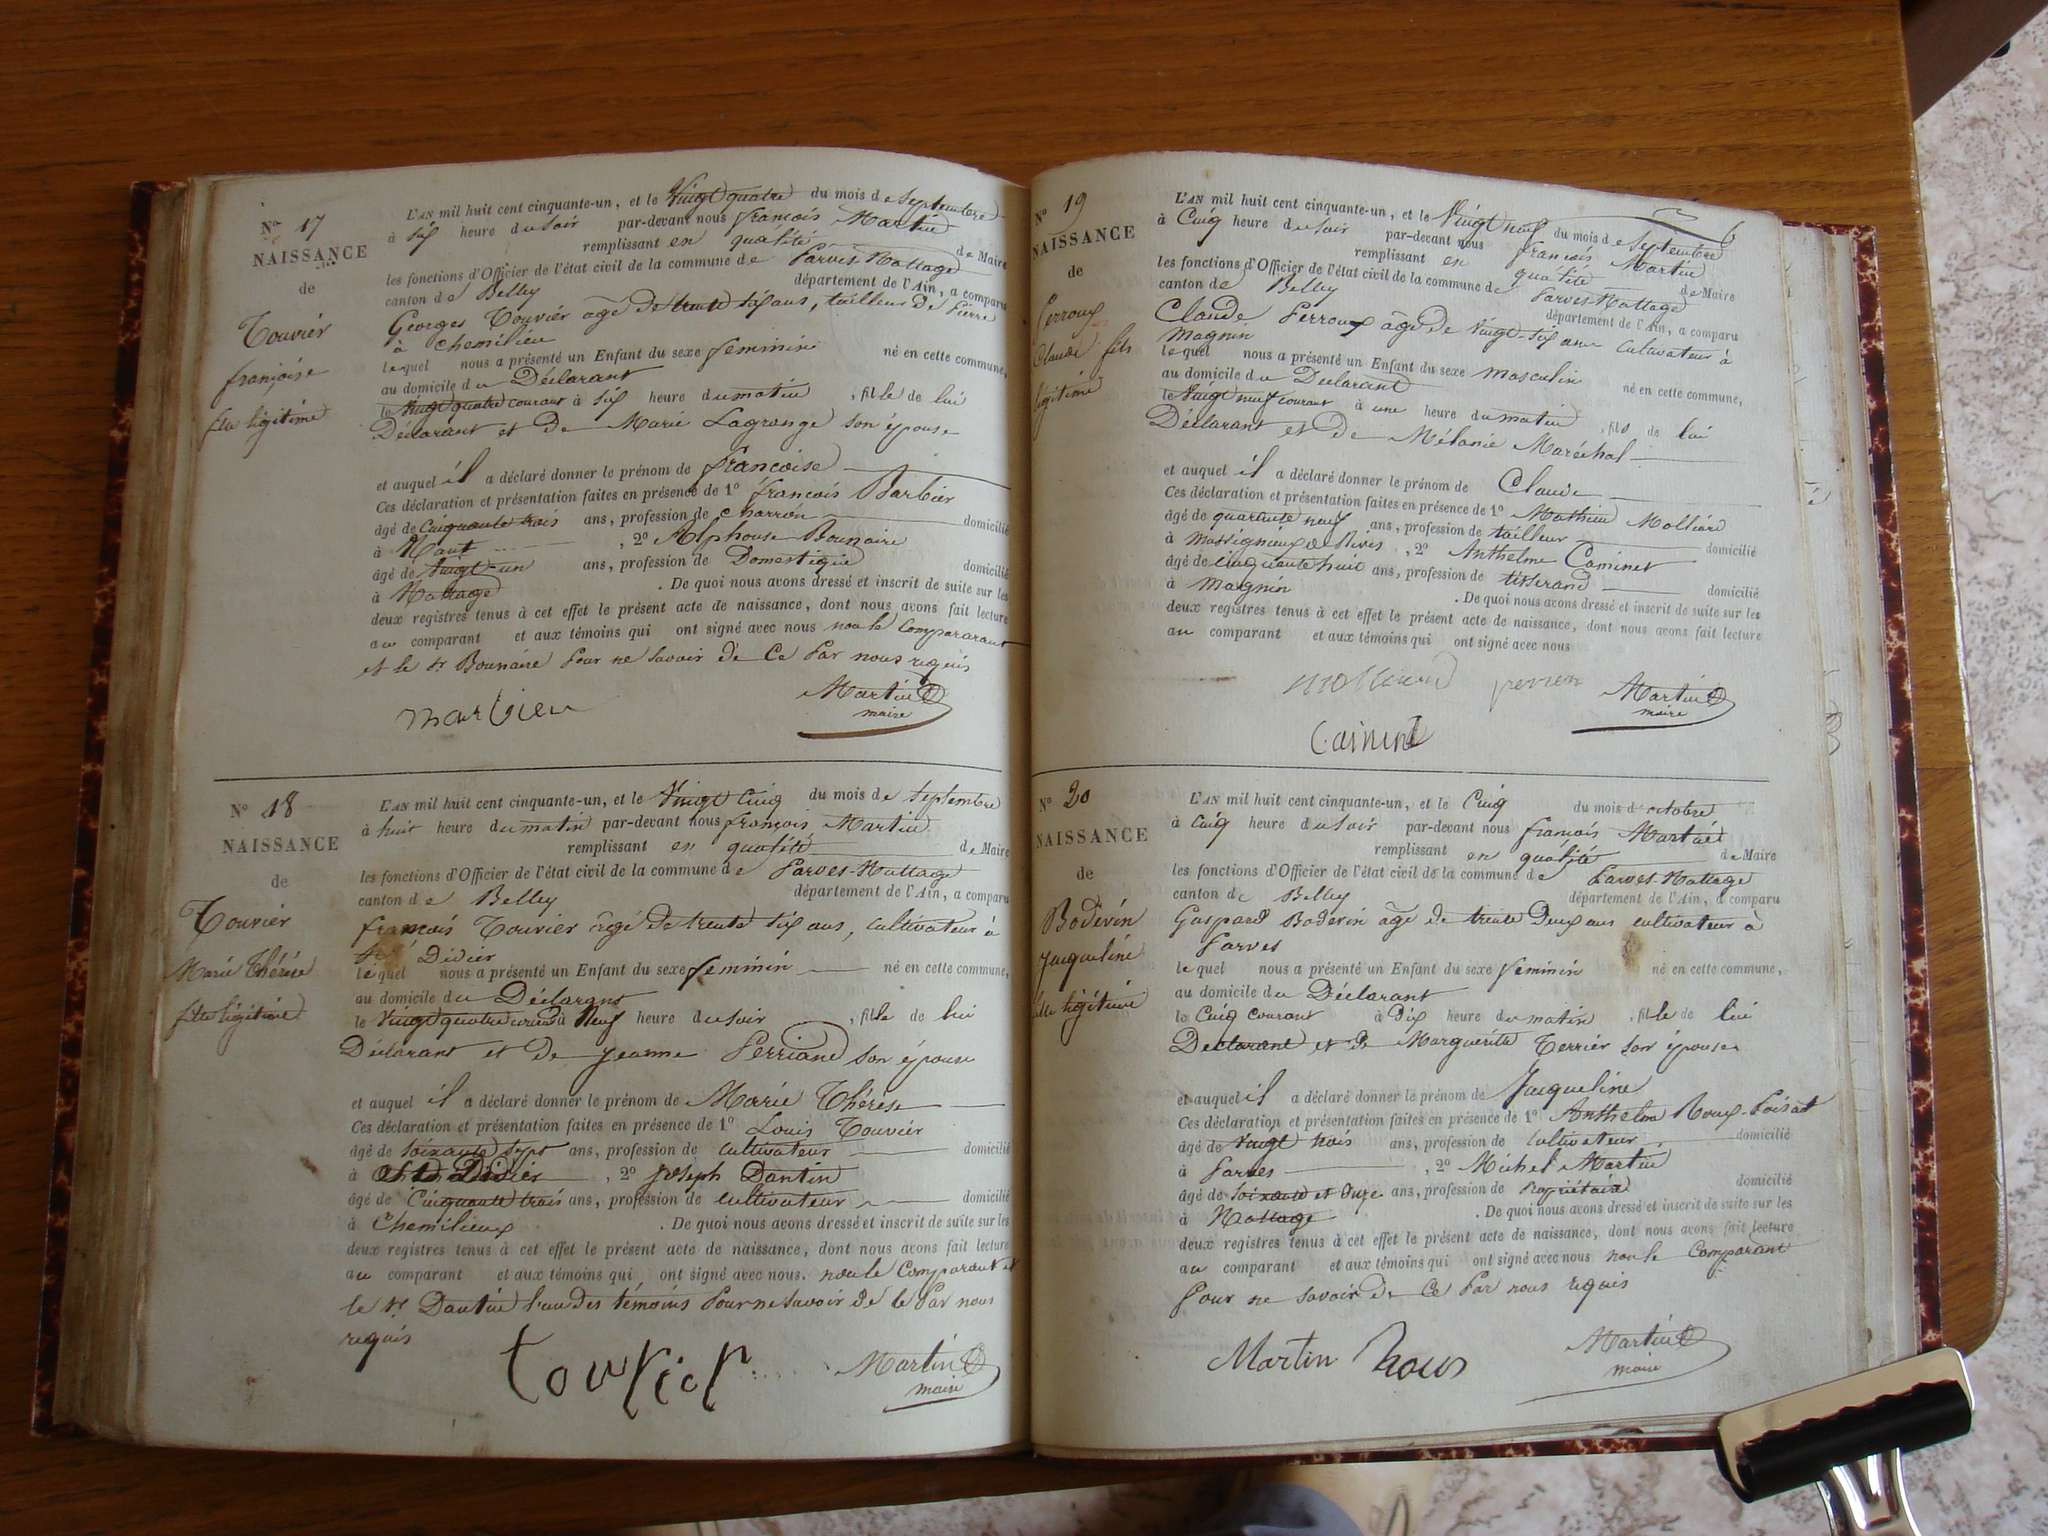 Nº 17
NAISSANCE
de
Touvier
françoise
fille légitime
L'AN mil huit cent cinquante-un, et le Vingt quatre du mois de Septembre
à six heure du soir par-devant nous françois Martin
remplissant en qualité de Maire
les fonctions d'Officier de l'état civil de la commune de Parves-Nattage
canton de Belley département de l'Ain, a comparu
Georges Touvier âgé de trente six ans, tailleur de Pierre
à Chemilieu
lequel nous a présenté un Enfant du sexe feminin né en cette commune,
au domicile du Déclarant
le Vingt quatre courant à six heure du matin, fille de lui
Déclarant et de Marie Lagrange son épouse
et auquel il a déclaré donner le prénom de françoise
Ces déclaration et présentation faites en présence de 1º françois Barbier
âgé de Cinquante trois ans, profession de charron domicilié
à Nant, 2º Alphonse Bonnaire
âgé de Vingt-un ans, profession de Domestique domicilié
à Nattage. De quoi nous avons dressé et inscrit de suite sur les
deux registres tenus à cet effet le présent acte de naissance, dont nous avons fait lecture
au comparant et aux témoins qui ont signé avec nous non le Compararant
et le Sr Bonnaire Pour ne Savoir de Ce Par nous requis
Martin
maire
Nº 18
NAISSANCE
de
Touvier
Marie Thérèse
fille légitime
L'AN mil huit cent cinquante-un, et le Vingt Cinq du mois de septembre
à huit heure du matin par-devant nous françois Martin
remplissant en qualité de Maire
les fonctions d'Officier de l'état civil de la commune de Parves-Nattage
canton de Belley département de l'Ain, a comparu
françois Touvier âgé de trente six ans, cultivateur à
St Didier
lequel nous a présenté un Enfant du sexe feminin né en cette commune,
au domicile du Déclarant
le Vingt quatre courant à Neuf heure du soir, fille de lui
Déclarant et de Jeanne Perriand son épouse
et auquel il a déclaré donner le prénom de Marie Thérèse
Ces déclaration et présentation faites en présence de 1º Louis Touvier
âgé de soixante sept ans, profession de cultivateur domicilié
à St Didier, 2º Joseph Dantin
âgé de Cinquante trois ans, profession de cultivateur domicilié
à Chemilieux. De quoi nous avons dressé et inscrit de suite sur les
deux registres tenus à cet effet le présent acte de naissance, dont nous avons fait lecture
au comparant et aux témoins qui ont signé avec nous. non le Comparant et
le Sr Dantin l'un des témoins Pour ne Savoir de Ce Par nous
requis
Martin
maire
Nº 19
6
NAISSANCE
de
Perroux
Claude fils
légitime
L'AN mil huit cent cinquante-un, et le Vingt neuf du mois de Septembre
à Cinq heure du soir par-devant nous françois Martin
remplissant en qualité de Maire
les fonctions d'Officier de l'état civil de la commune de Parves-Nattage
canton de Belley département de l'Ain, a comparu
Claude Perroux âgé de Vingt-six ans cultivateur à
Magnin
lequel nous a présenté un Enfant du sexe masculin né en cette commune,
au domicile du Déclarant
le Vingt neuf courant à une heure du matin, fils de lui
Déclarant et de Mélanie Maréchal
et auquel il a déclaré donner le prénom de Claude
Ces déclaration et présentation faites en présence de 1º Mathieu Molliard
âgé de quarante neuf ans, profession de tailleur domicilié
à Massignieux de Rives, 2º Anthelme Caminet
âgé de cinquante huit ans, profession de tisserand domicilié
à Magnin. De quoi nous avons dressé et inscrit de suite sur les
deux registres tenus à cet effet le présent acte de naissance, dont nous avons fait lecture
au comparant et aux témoins qui ont signé avec nous
Martin
maire
Nº 20
NAISSANCE
de
Bodevin
Jacqueline
fille légitime
L'AN mil huit cent cinquante-un, et le Cinq du mois d'octobre
à Cinq heure du soir par-devant nous françois Martin
remplissant en qualité de Maire
les fonctions d'Officier de l'état civil de la commune de Parves-Nattage
canton de Belley département de l'Ain, a comparu
Gaspard Bodevin âgé de trente Deux ans cultivateur à
Parves
lequel nous a présenté un Enfant du sexe feminin né en cette commune,
au domicile du Déclarant
le Cinq courant à Dix heure du matin, fille de lui
Declarant et de Marguerite Terrier son épouse
et auquel il a déclaré donner le prénom de Jacqueline
Ces déclaration et présentation faites en présence de 1º Anthelme Roux-Poisat
âgé de Vingt trois ans, profession de cultivateur domicilié
à Parves, 2º Michel Martin
âgé de soixante et Onze ans, profession de Propriétaire domicilié
à Nattage. De quoi nous avons dressé et inscrit de suite sur les
deux registres tenus à cet effet le présent acte de naissance, dont nous avons fait lecture
au comparant et aux témoins qui ont signé avec nous non le Comparant
Pour ne savoir de Ce Par nous requis
Martin Roux Martin
maire